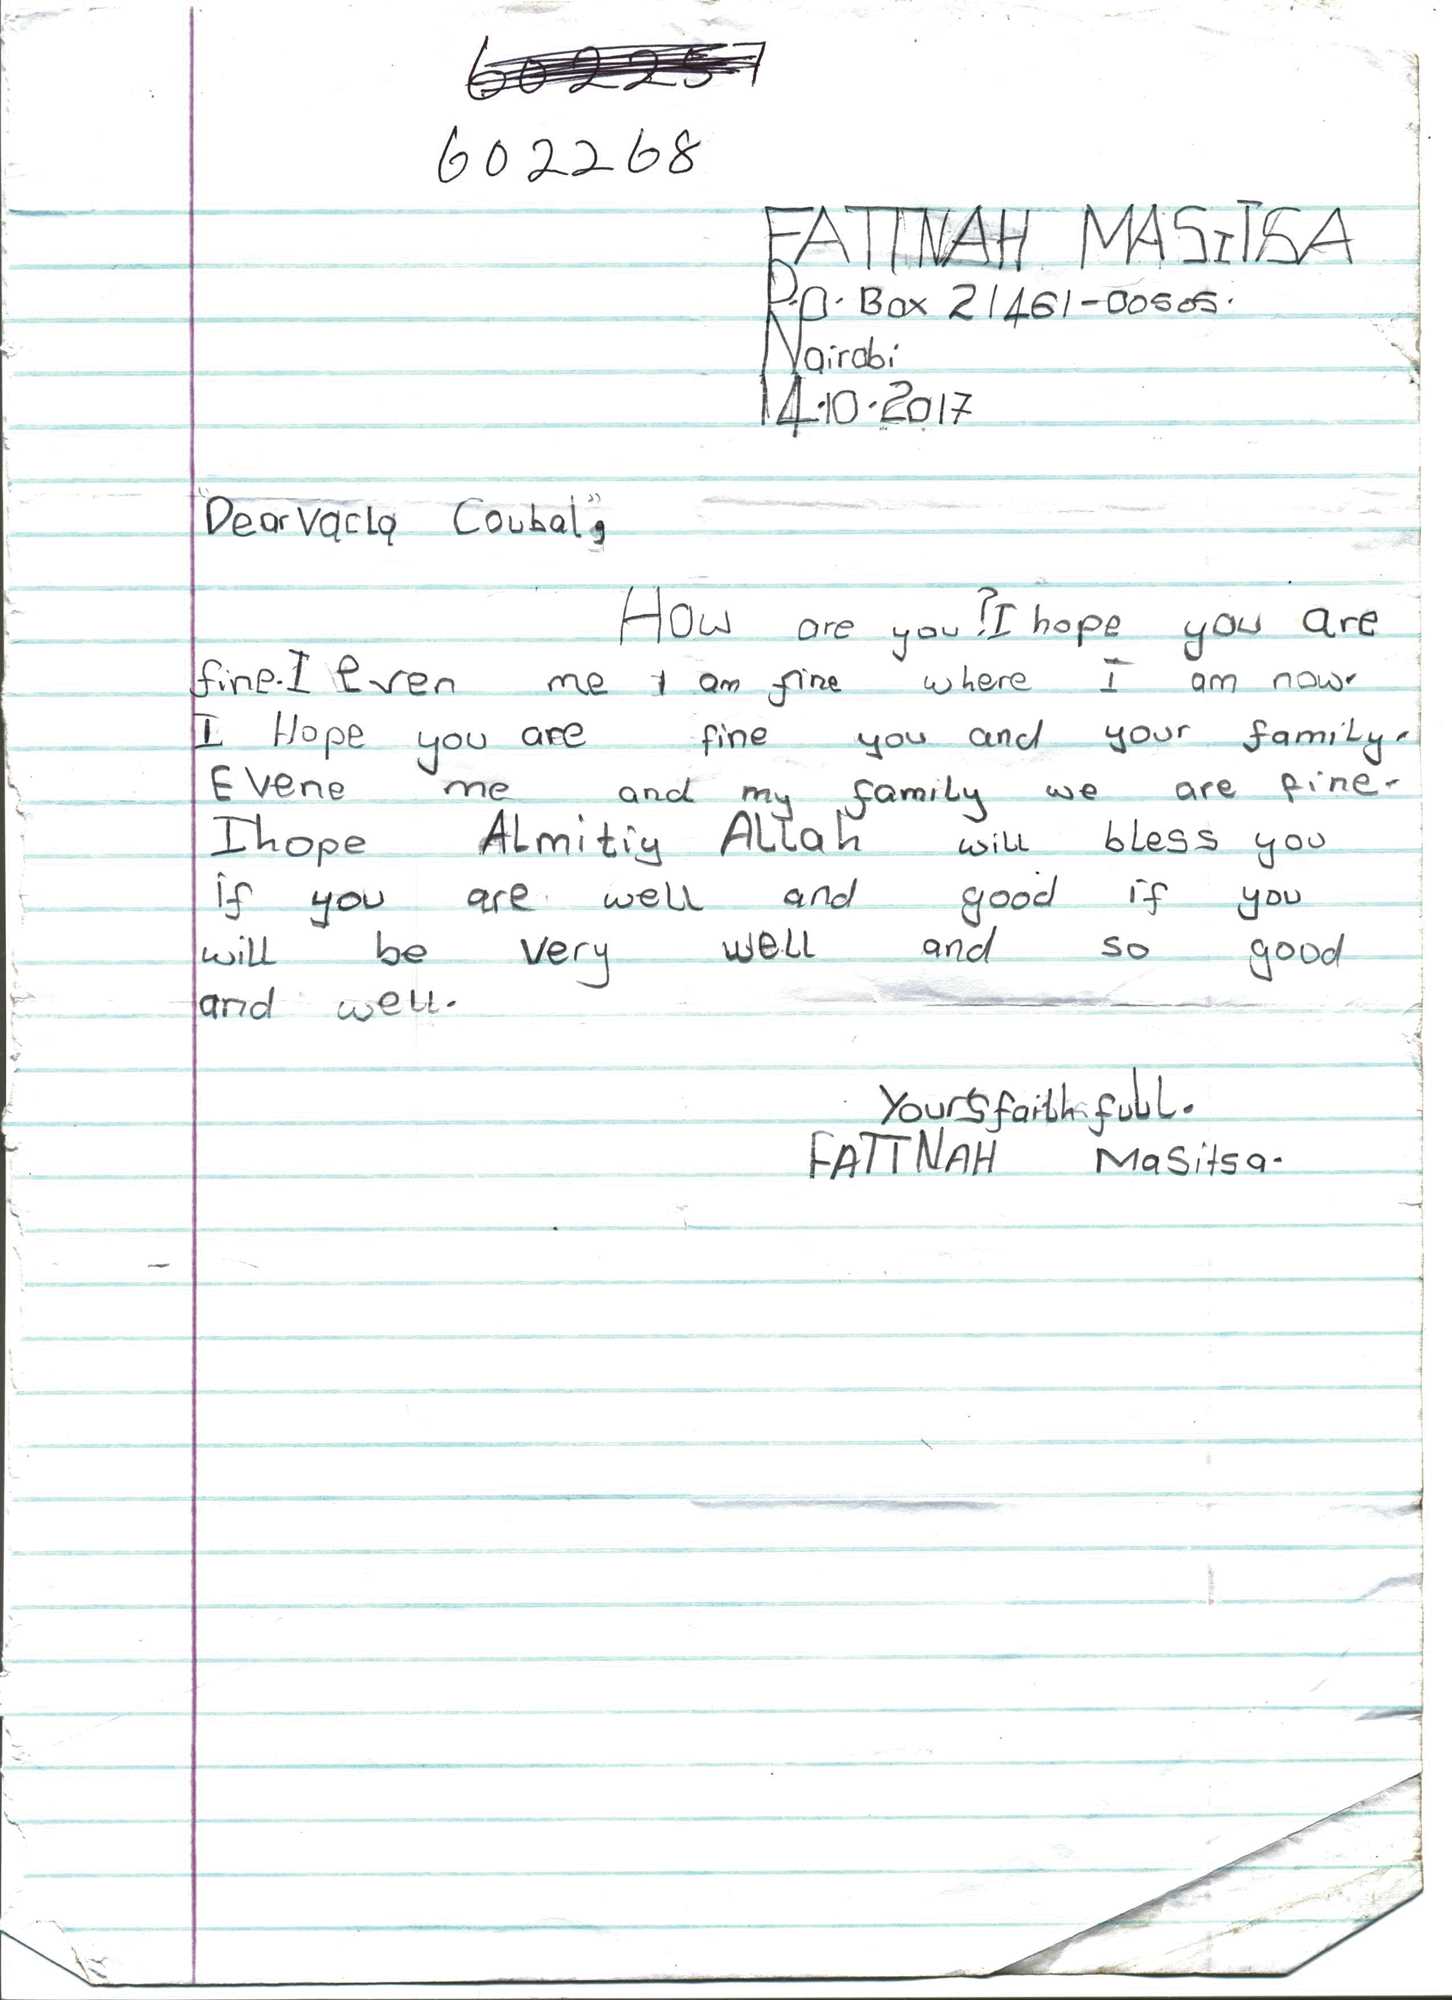 602257
602268
FATTNAH MASITSA
P.O. Box 21461-00505.
Nairobi
14.10.2017
"Dear Vacla Coubal",
How are you? I hope you are
fine. I Even me I am fine where I am now.
I Hope you are fine you and your family.
Evene me and my family we are fine.
I hope Almitiy Allah will bless you
if you are well and good if you
will be very well and so good
and well.
Yours faithfull.
FATTNAH Masitsa.